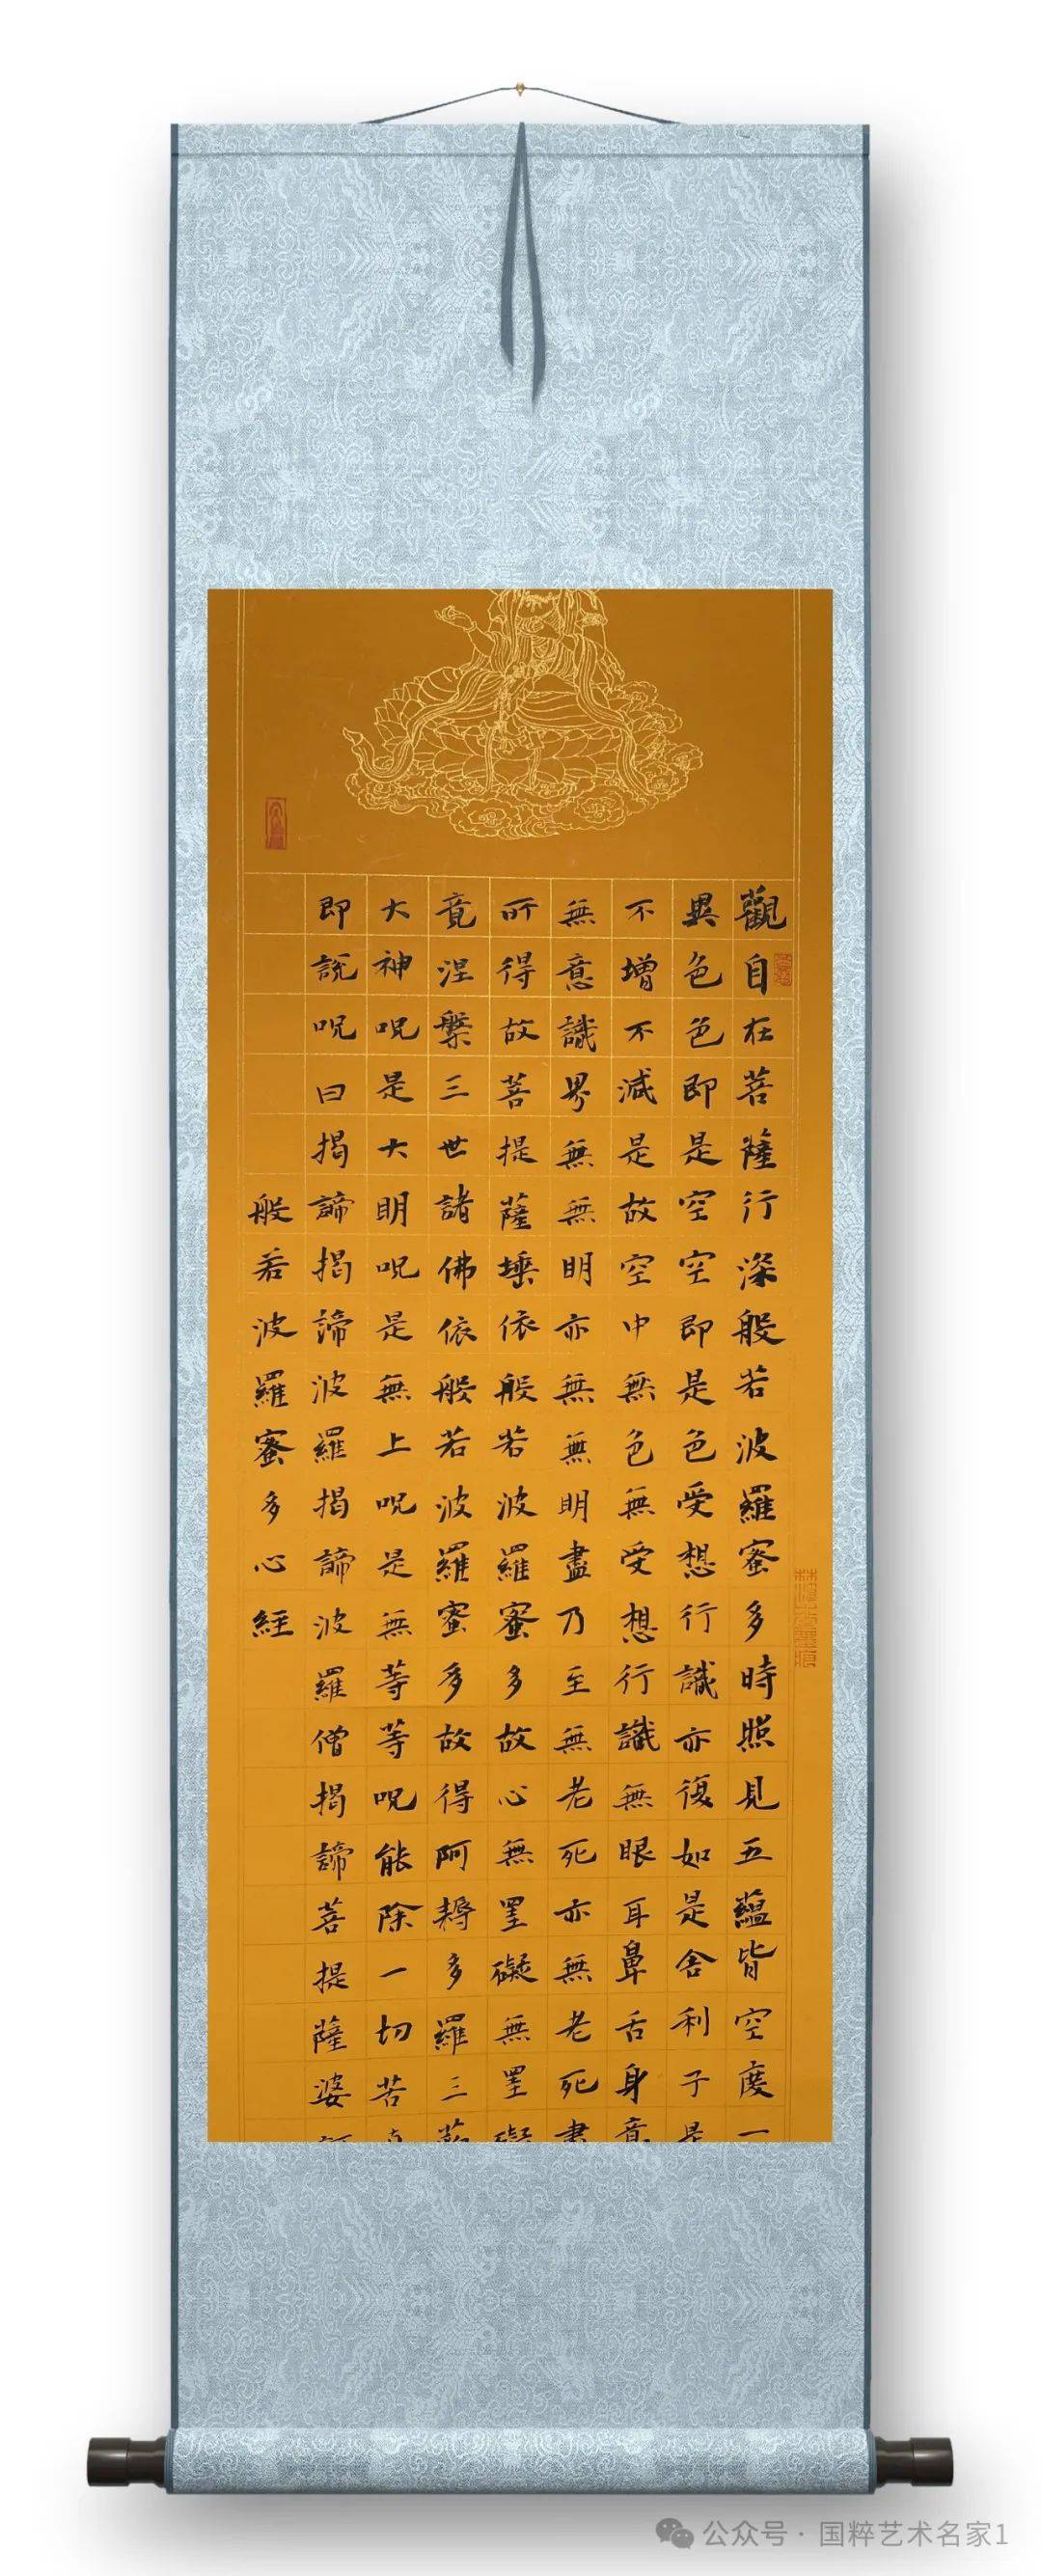 觀自在菩薩行深般若波羅蜜多時照見五蘊皆空度一
異色色即是空空即是色受想行識亦復如是舍利子是
不增不減是故空中無色無受想行識無眼耳鼻舌身意
無意識界無無明亦無無明盡乃至無老死亦無老死盡
所得故菩提薩埵依般若波羅蜜多故心無罣礙無罣礙
竟涅槃三世諸佛依般若波羅蜜多故得阿耨多羅三藐
大神呪是大明呪是無上呪是無等等呪能除一切苦真
即說呪曰揭諦揭諦波羅揭諦波羅僧揭諦菩提薩婆
般若波羅蜜多心經
公众号 · 国粹艺术名家1